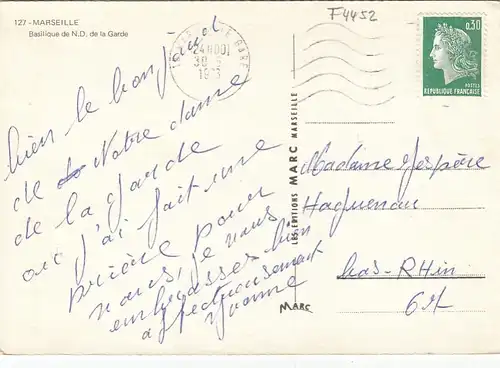 127 - MARSEILLE
Basilique de N.D. de la Garde
F4452
24H00
30
1973
0,30
POSTES
REPUBLIQUE FRANÇAISE
bien le bonjour
de Notre dame
de la garde
où j'ai fait une
prière pour
vous, je vous
embrasses bien
affectueusement
Yvonne
LES EDITIONS MARC MARSEILLE
MARC
Madame Jespère
Haguenau
bas-RHin
67